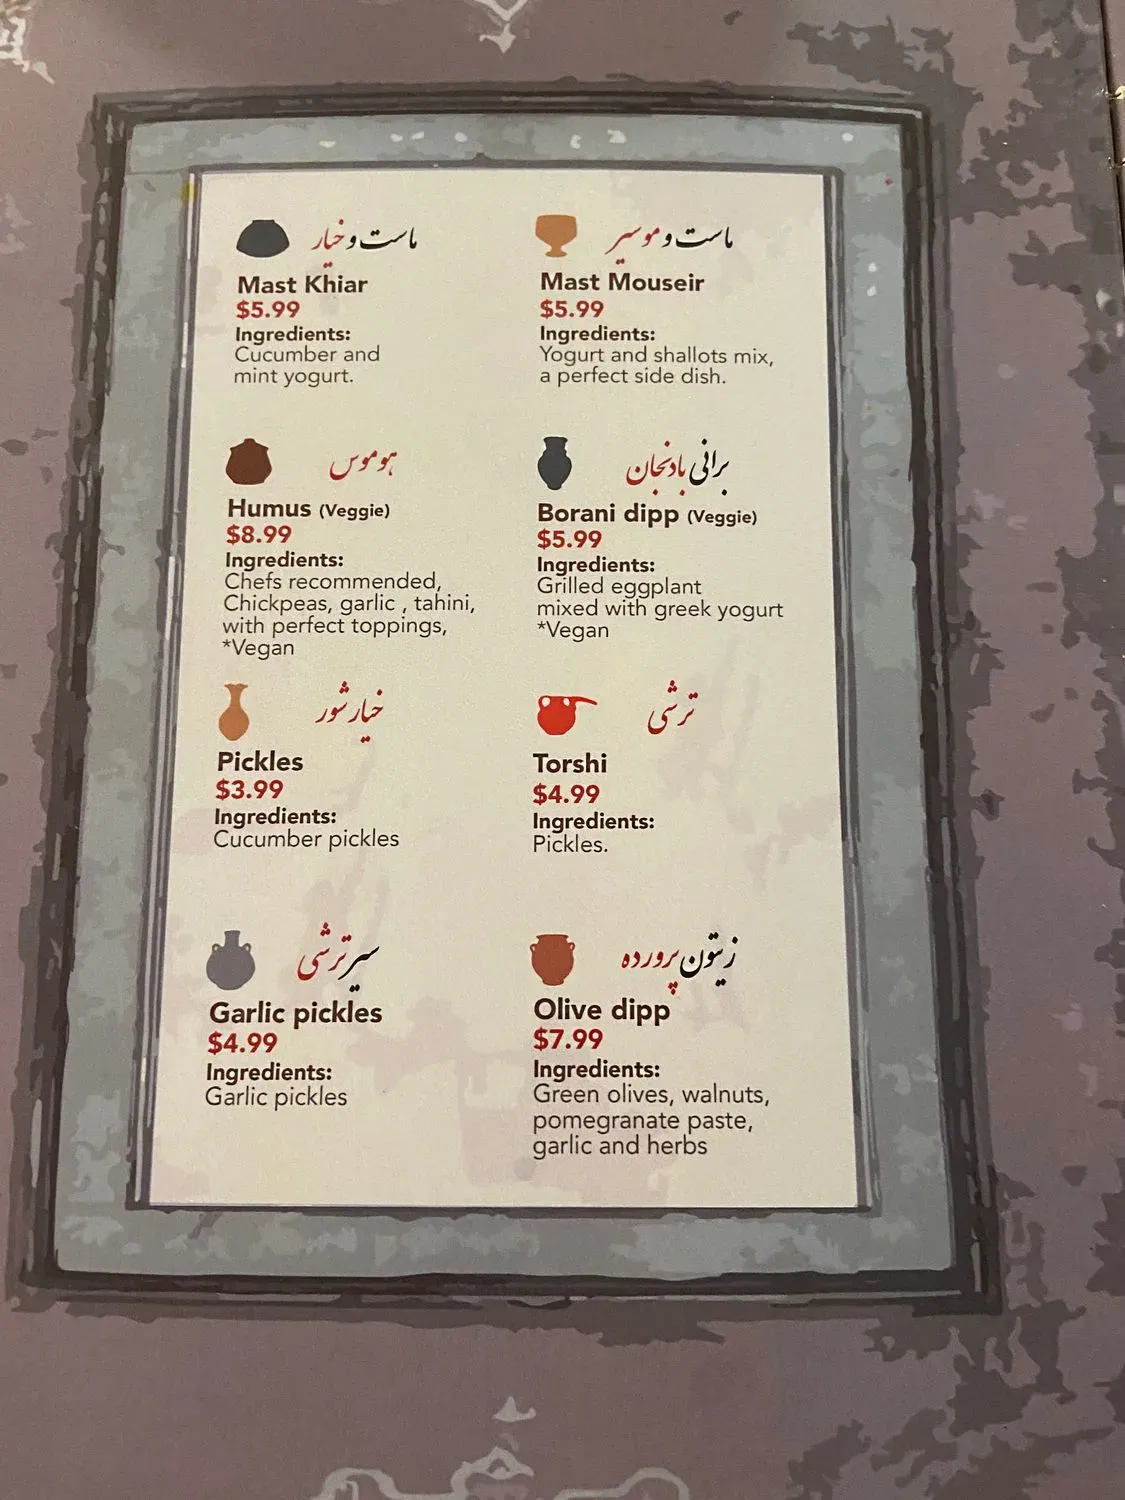 ماست و خیار
Mast Khiar
$5.99
Ingredients:
Cucumber and
mint yogurt.
ماست و موسیر
Mast Mouseir
$5.99
Ingredients:
Yogurt and shallots mix,
a perfect side dish.
هوموس
Humus (Veggie)
$8.99
Ingredients:
Chefs recommended,
Chickpeas, garlic , tahini,
with perfect toppings,
*Vegan
برانی بادنجان
Borani dipp (Veggie)
$5.99
Ingredients:
Grilled eggplant
mixed with greek yogurt
*Vegan
خیارشور
Pickles
$3.99
Ingredients:
Cucumber pickles
ترشی
Torshi
$4.99
Ingredients:
Pickles.
سیر ترشی
Garlic pickles
$4.99
Ingredients:
Garlic pickles
زیتون پرورده
Olive dipp
$7.99
Ingredients:
Green olives, walnuts,
pomegranate paste,
garlic and herbs